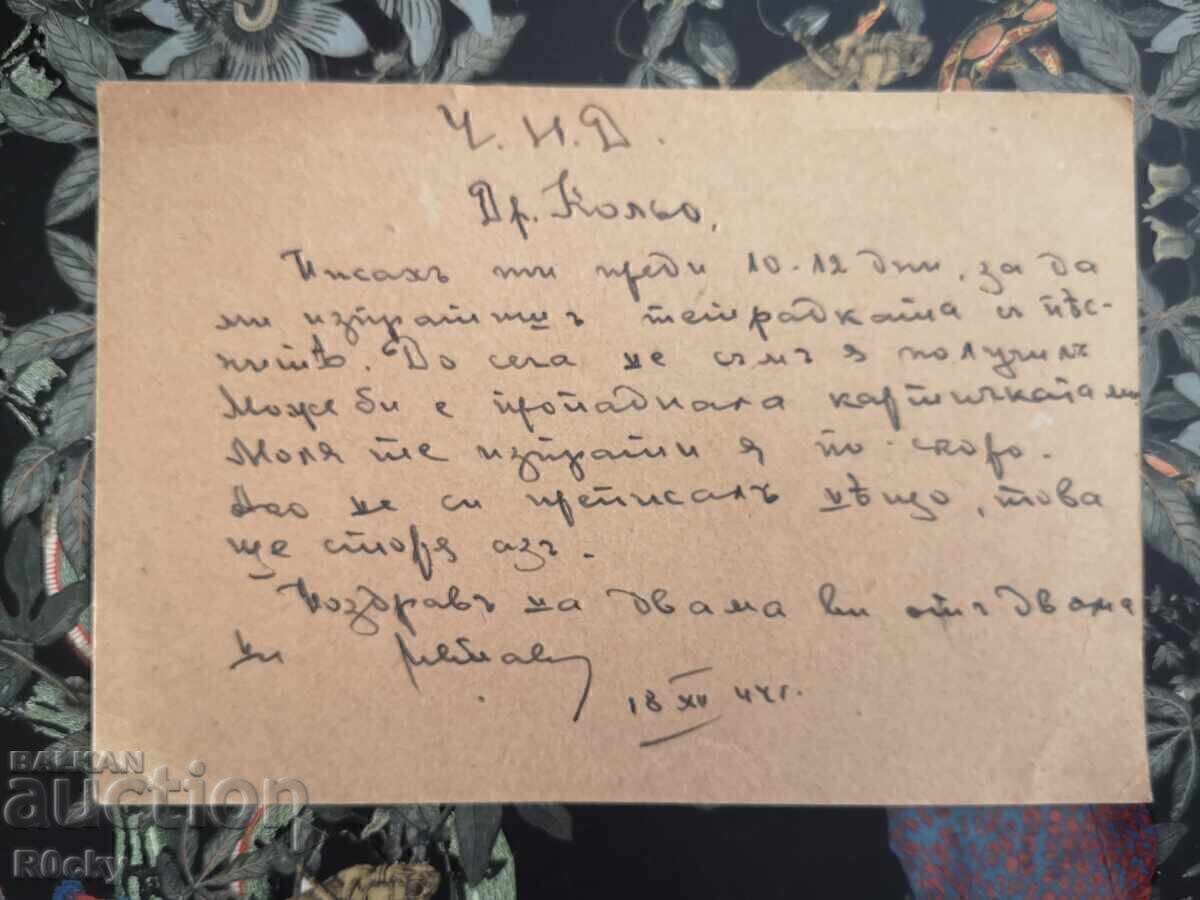 Ч.Н.Д.
Др. Кольо,
Писахъ ти преди 10-12 дни, за да
ми изпратишъ тетрадката съ пѣс-
нитѣ. До сега не съмъ я получилъ
Може би е пропаднала картичката ми
Моля те изпрати я по скоро.
Ако не си преписалъ нѣщо, това
ще сторя азъ.
Поздравъ на двама ви отъ двама
ни
18 XII 44 г.
BALKAN
auction
R0cky